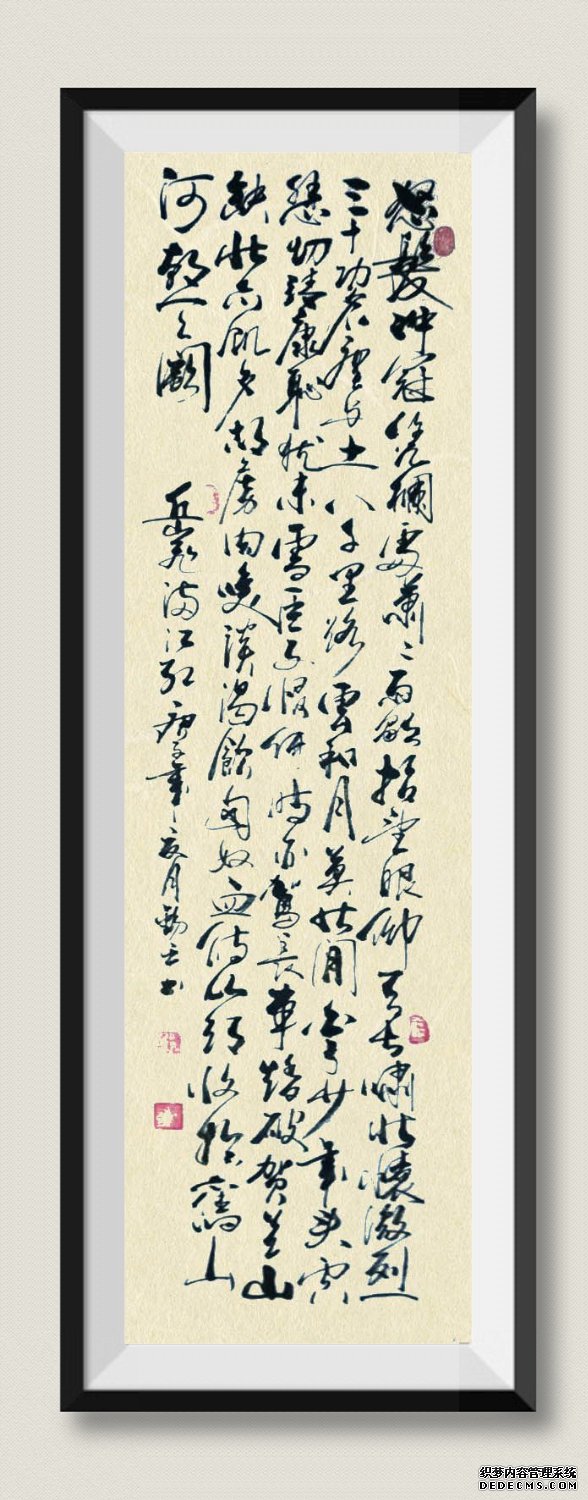 怒髮冲冠凭欄處蕭〻雨歇抬望眼仰天長嘯壯懷激烈
三十功名塵与土八千里路雲和月莫等閒白了少年头空
悲切靖康恥犹未雪臣子恨何时灭駕長車踏破贺兰山
缺壮志飢餐胡虜肉笑談渴飲匈奴血待从頭收拾舊山
河朝天闕
岳飛满江红 庚子年 月 书
织梦内容管理系统
DEDECMS.COM